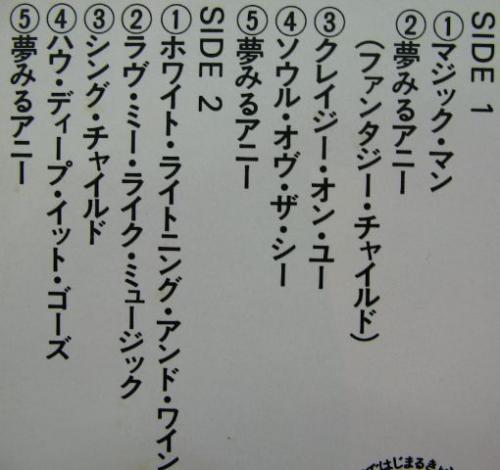 SIDE 1
①マジック・マン
②夢みるアニー
(ファンタジー・チャイルド)
③クレイジー・オン・ユー
④ソウル・オヴ・ザ・シー
⑤夢みるアニー
SIDE 2
①ホワイト・ライトニング・アンド・ワイン
②ラヴ・ミー・ライク・ミュージック
③シング・チャイルド
④ハウ・ディープ・イット・ゴーズ
⑤夢みるアニー
ではじまるき